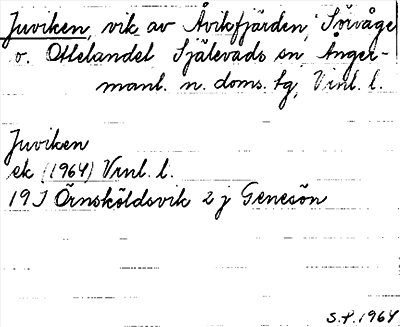 Juviken, vik av Åvikfjärden, Sörvåge
o. Otlelandet Själevads sn, Ånger-
manl. n. doms. tg, Vrnl. l.
Juviken
ek (1964) Vrnl. l.
19J Örnsköldsvik 2 j Genesön
S.P.1964